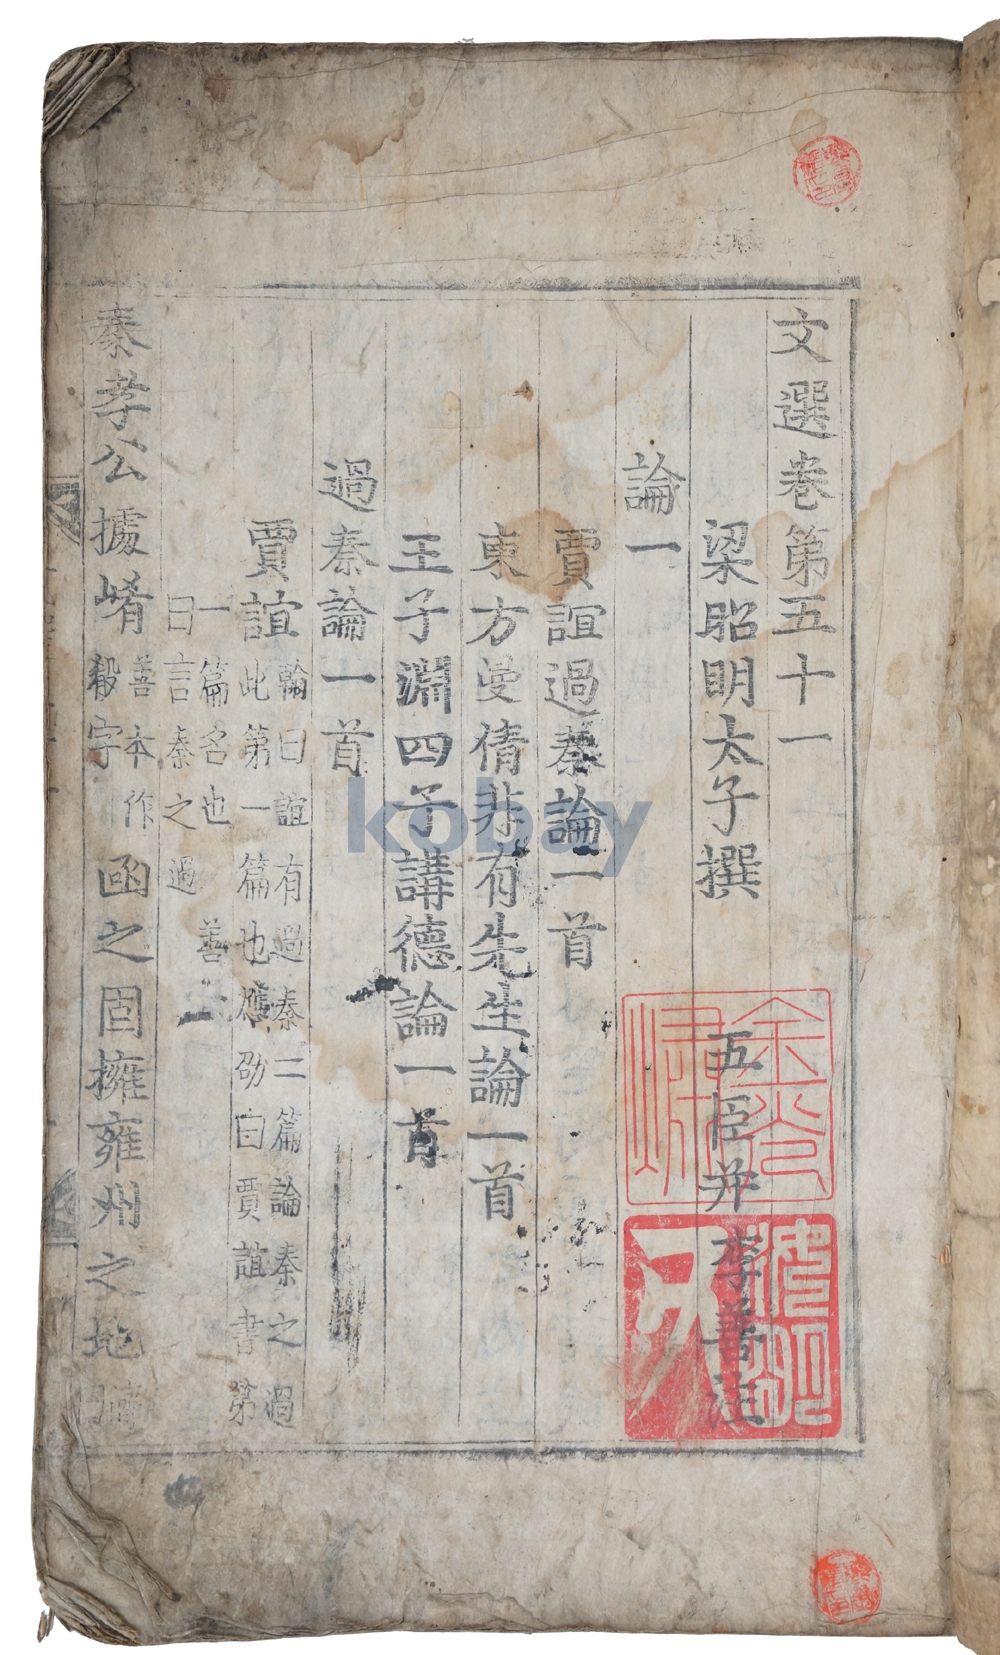 文選卷第五十一
梁昭明太子撰 五臣并李善注
論一
賈誼過秦論一首
東方曼倩非有先生論一首
王子淵四子講德論一首
過秦論一首
賈誼
翰曰誼有過秦二篇論秦之過
此第一篇也應劭曰賈誼書第
一篇名也 善
曰言秦之過
秦孝公據崤
善本作
殽字
函之固擁雍州之地
kobay